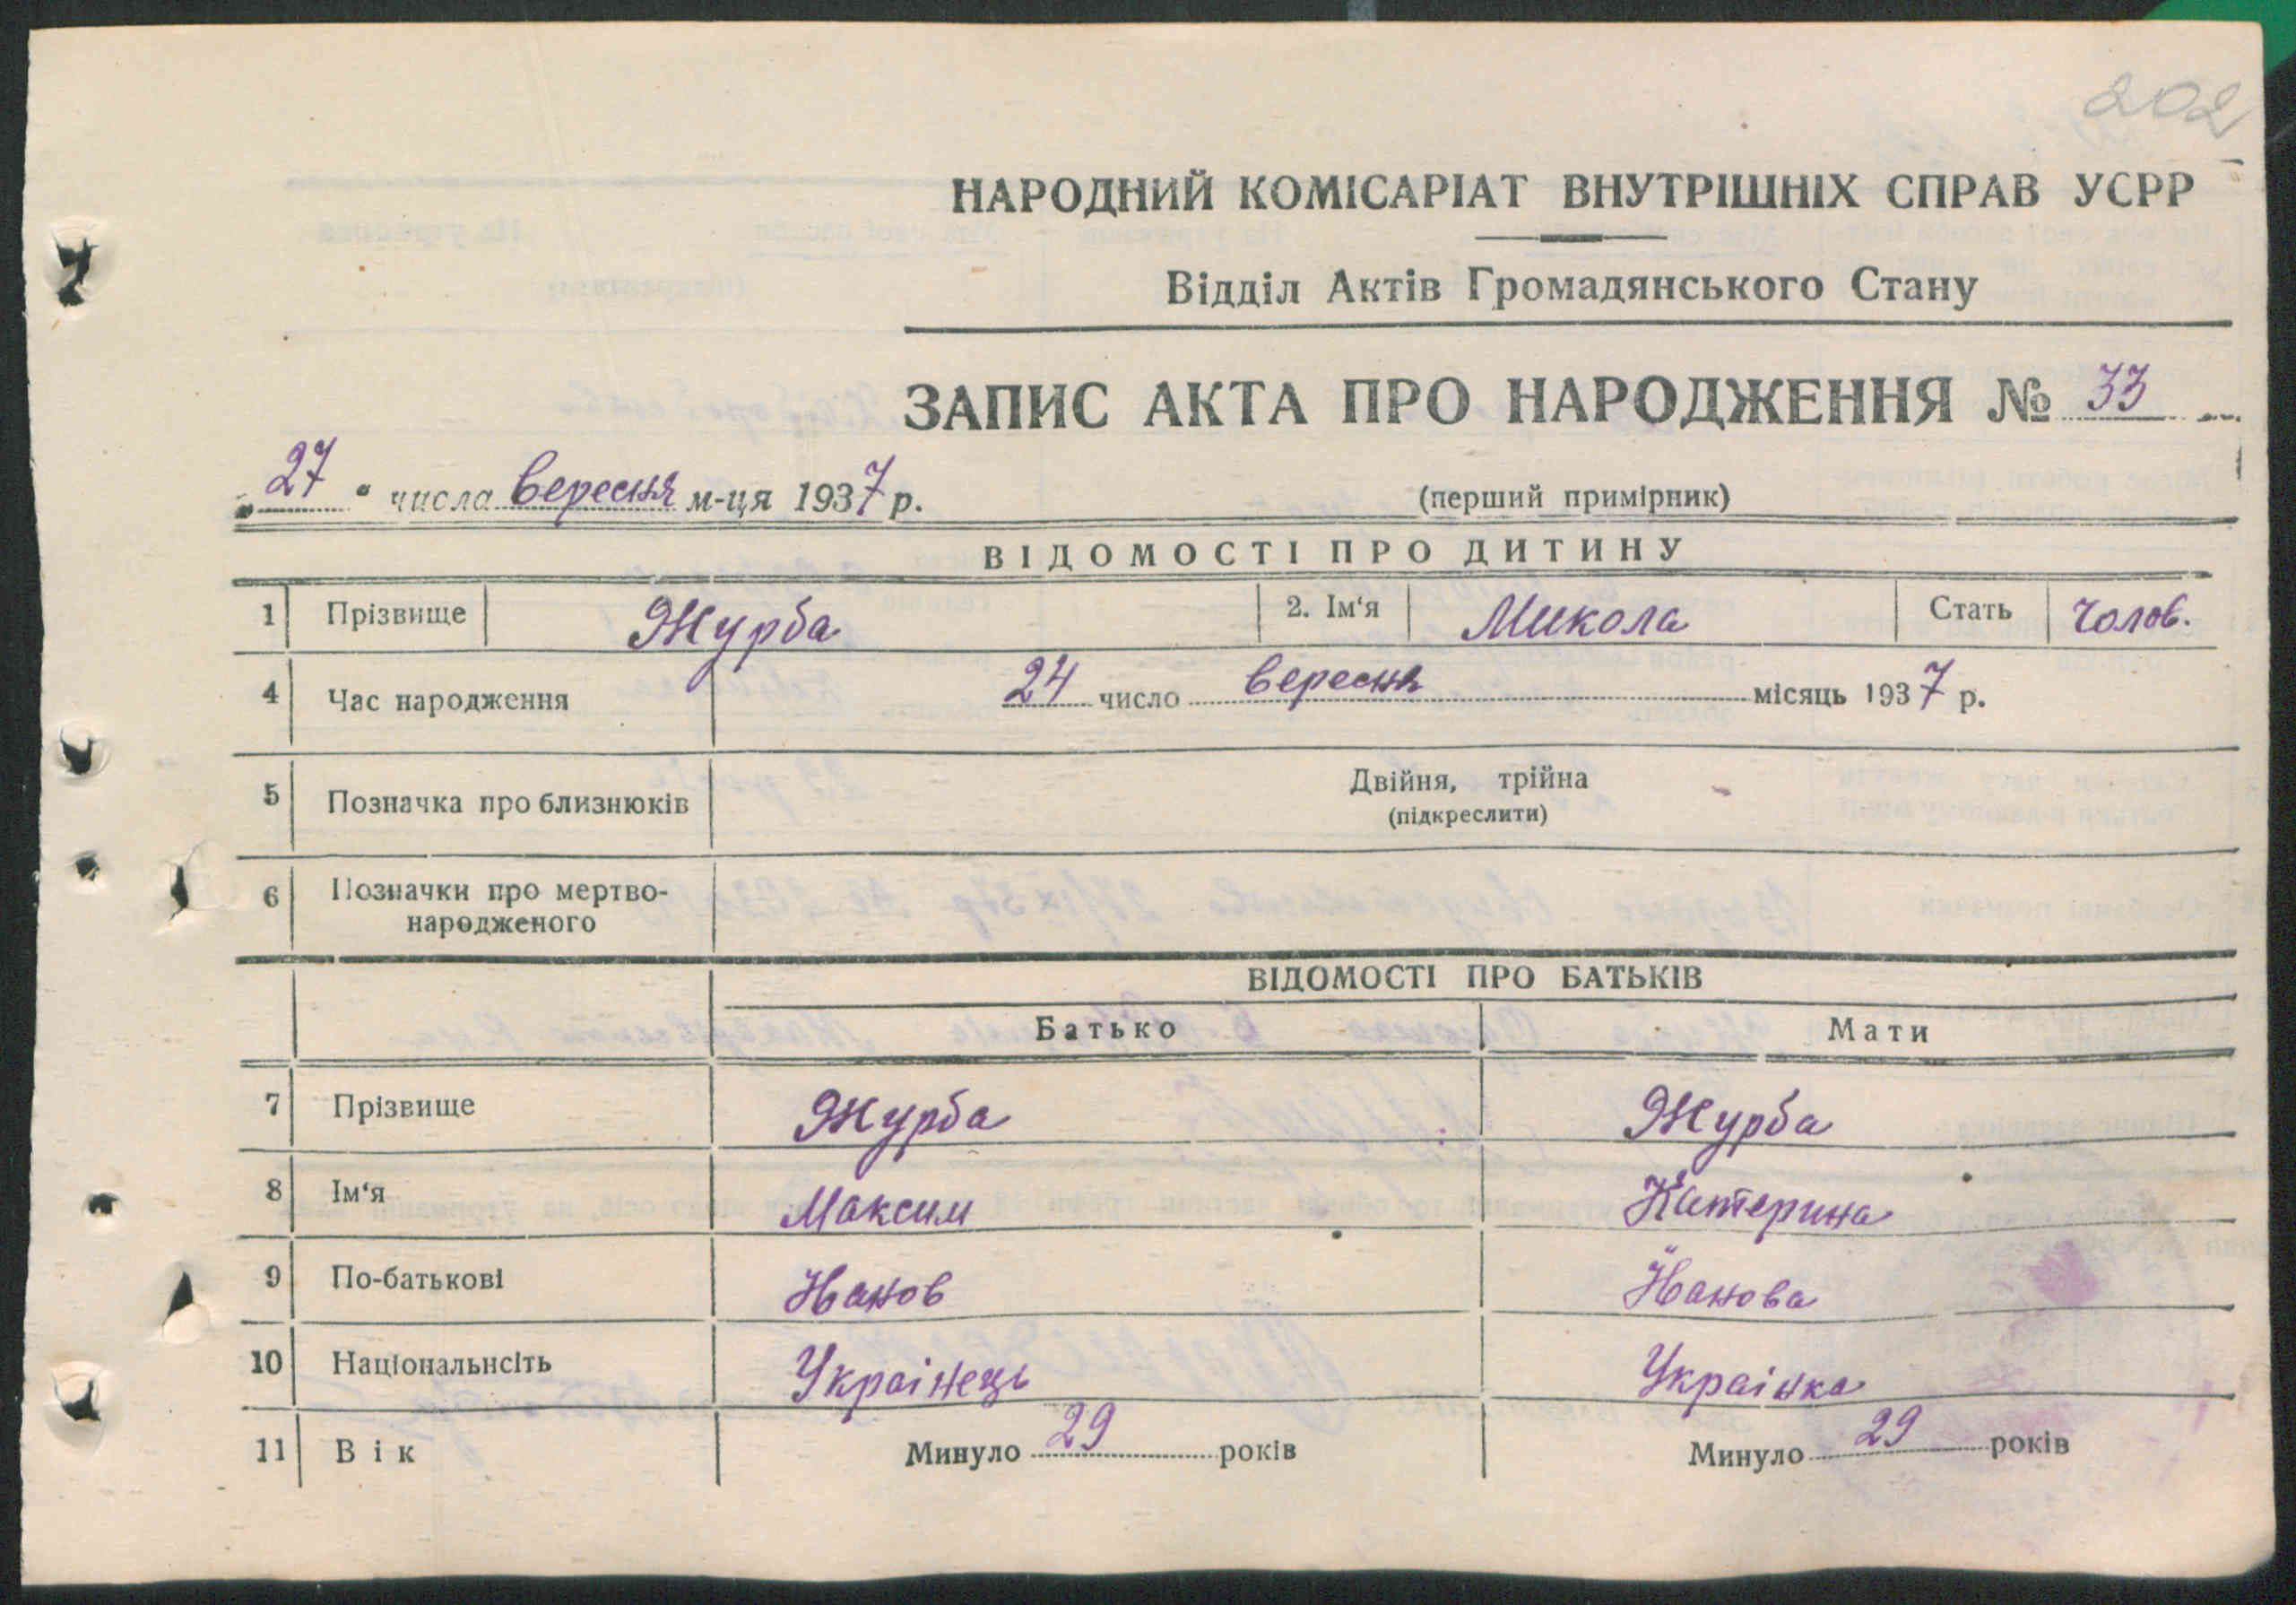 202
НАРОДНИЙ КОМІСАРІАТ ВНУТРІШНІХ СПРАВ УСРР
Відділ Актів Громадянського Стану
ЗАПИС АКТА ПРО НАРОДЖЕННЯ № 33
„27“ числа вересня м-ця 1937 р.
(перший примірник)
ВІДОМОСТІ ПРО ДИТИНУ
1 Прізвище Журба 2. Ім‘я Микола Стать Чолов.
4 Час народження 24 число вересня місяць 1937 р.
5 Позначка про близнюків Двійня, трійна
(підкреслити)
6 Позначки про мертво-
народженого
ВІДОМОСТІ ПРО БАТЬКІВ
Батько Мати
7 Прізвище Журба Журба
8 Ім‘я Максим Катерина
9 По-батькові Іванов Іванова
10 Національнсіть Українець Українка
11 Вік Минуло 29 років Минуло 29 років